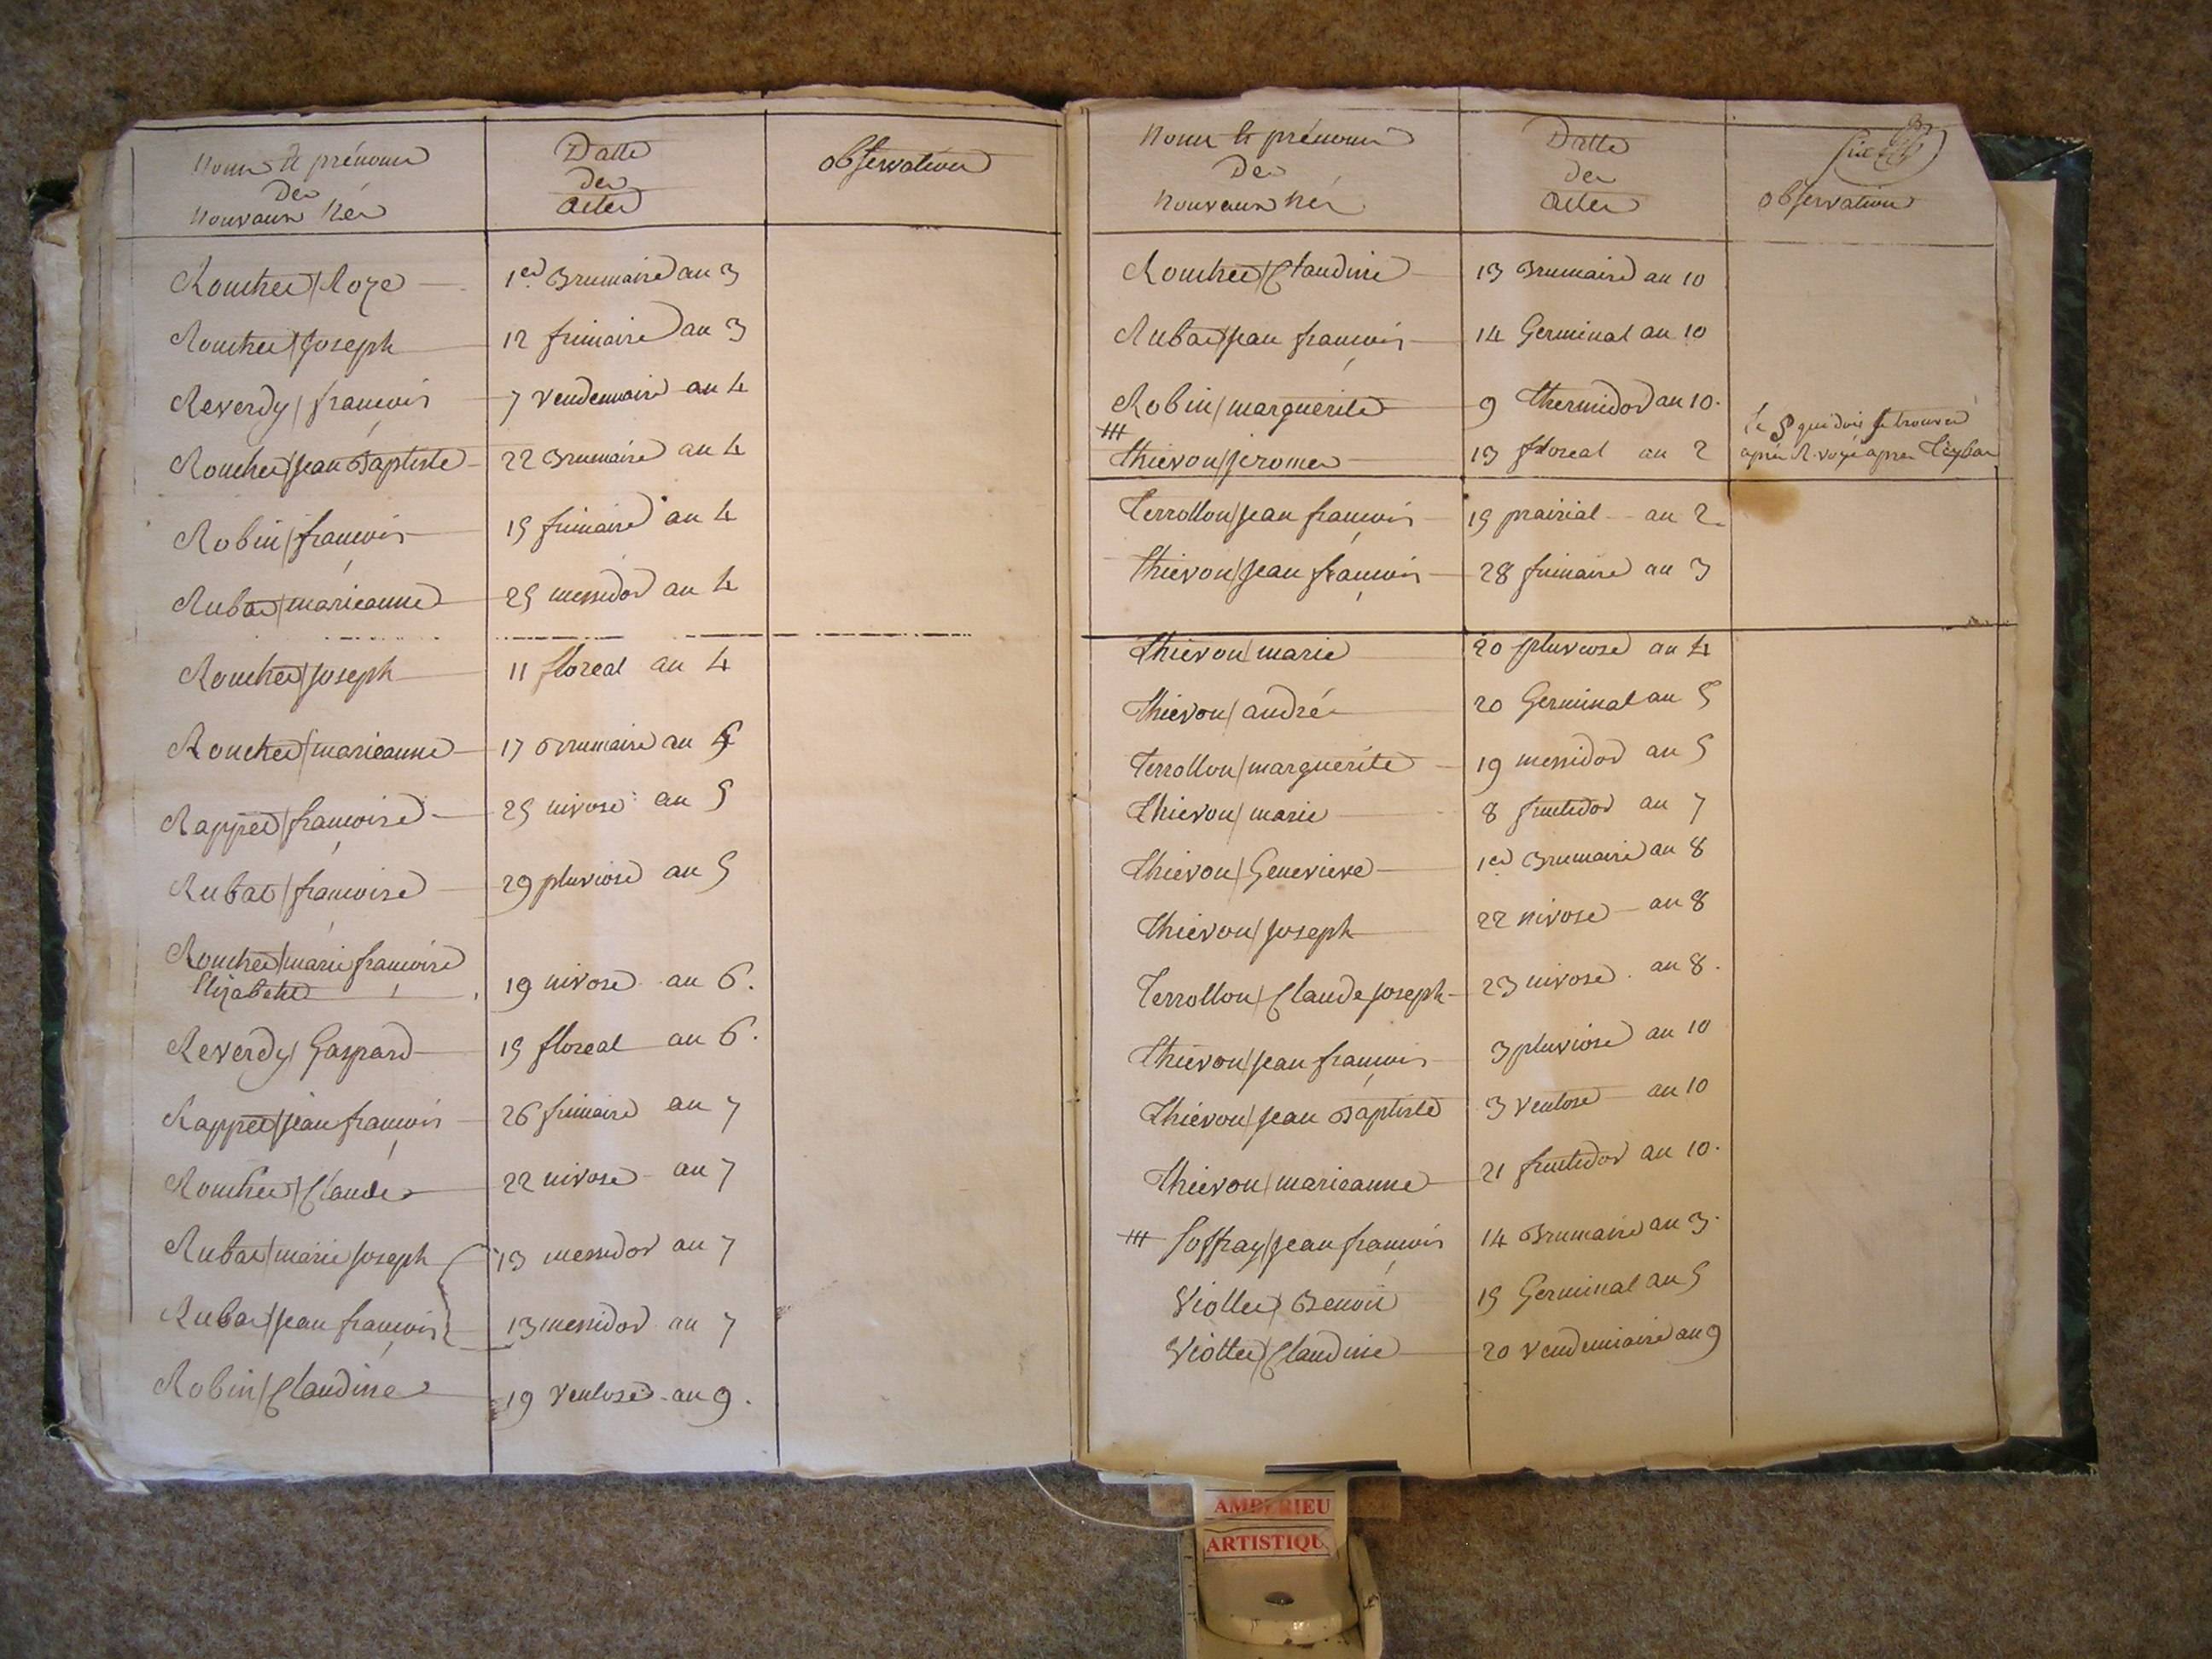 Noms et prénoms
Des
Nouveaux Nés
Datte
des
Actes
observations
Rouchet / Roze 1er Brumaire an 3
Rouchet / Joseph 12 frimaire an 3
Reverdy / françois 7 Vendemiaire an 4
Rouchet / Jean Baptiste 22 Brumaire an 4
Robin / françois 15 frimaire an 4
Rubat / marieanne 25 messidor an 4
Rouchet / Joseph 11 floreal an 4
Rouchet / marieanne 17 Brumaire an 5
Rappet / françoise 25 nivose an 5
Rubat / françoise 29 pluviose an 5
Rouchet / marie françoise
Elizabethe 19 nivose an 6.
Reverdy / Gaspard 15 floreal an 6.
Rappet / jean françois 26 frimaire an 7
Rouchet / Claude 22 nivose an 7
Rubat / marie Joseph 13 messidor an 7
Rubat / Jean françois 13 messidor an 7
Robin / Claudine 19 Ventose an 9.
Noms et prénoms
Des
Nouveaux Nés
Datte
des
Actes
Six
observations
Rouchet / Claudine 13 Brumaire an 10
Rubat / Jean françois 14 Germinal an 10
Robin / marguerite 9 thermidor an 10.
le S qui doit se trouver
Thievon / jerome 13 floreal an 2 après R. voyé après
Terrollon / Jean françois 15 prairial an 2.
Thievon / Jean françois 28 frimaire an 3
Thievon / marie 20 pluviose an 4
Thievon / andré 20 Germinal an 5
Terrollon / marguerite 19 messidor an 5
Thievon / marie 8 fructidor an 7
Thievon / Genevieve 1er Brumaire an 8
Thievon / Joseph 22 nivose an 8
Terrollon / Claude Joseph 23 nivose an 8.
Thievon / Jean françois 3 pluviose an 10
Thievon / Jean Baptiste 3 Ventose an 10
Thievon / marieanne 21 fructidor an 10.
Soffray / Jean françois 14 Brumaire an 3.
Viollet / Benoit 15 Germinal an 5
Viollet / Claudine 20 Vendemiaire an 9
AMBERIEU
ARTISTIQU